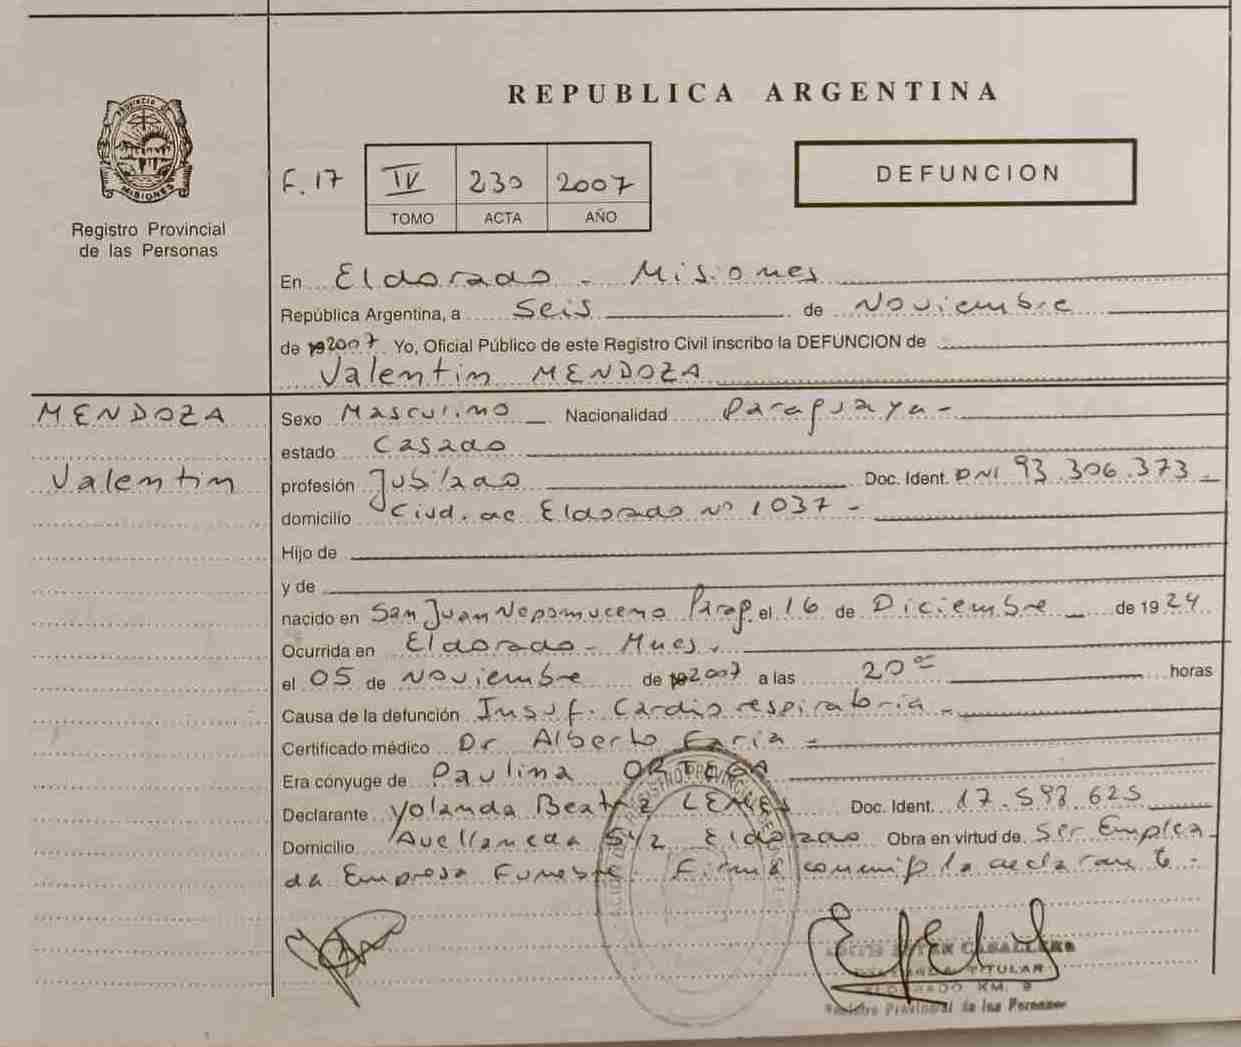 REPUBLICA ARGENTINA
PROVINCIA DE
MISIONES
Registro Provincial
de las Personas
F. 17 IV 230 2007
TOMO ACTA AÑO
DEFUNCION
En Eldorado - Misiones
República Argentina, a Seis de Noviembre
de 2007 Yo, Oficial Público de este Registro Civil inscribo la DEFUNCION de
Valentin MENDOZA
MENDOZA
Valentin
Sexo Masculino Nacionalidad Paraguaya -
estado Casado
profesión Jubilado Doc. Ident. DNI 93.306.373
domicilio Ciud. de Eldorado nº 1037 -
Hijo de
y de
nacido en San Juan Nepomuceno Parag. el 16 de Diciembre de 1924
Ocurrida en Eldorado - Mnes.
el 05 de Noviembre de 2007 a las 20 horas
Causa de la defunción Insuf. Cardiorespiratoria -
Certificado médico Dr Alberto Faria -
Era cónyuge de Paulina ORTEGA
Declarante Yolanda Beatriz Doc. Ident. 17.593.625
Domicilio Avellaneda Eldorado Obra en virtud de Ser Emplea-
da Empresa Funebre. Firma conmigo la declarante -
REGISTRO PROVINCIAL DE
CABALLERO
TITULAR
ELDORADO KM. 9
Registro Provincial de las Personas